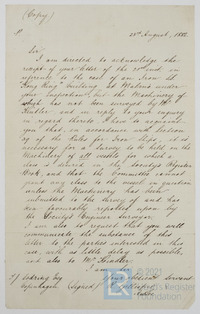 (Copy)
23rd August, 1882
Sir,
I am directed to acknowledge the
receipt of your letter of the
reference to the case of an Iron St.
"Hong King" building at Malmö under
your inspection, but the Machinery of
which has not been surveyed by Mr
Kindler and in reply to your inquiry
in regard thereto I have to acquaint
you that, in accordance with Section
of the Rules for Iron Ships it is
necessary for a Survey to be held on the
Machinery of all vessels for which a
class is desired in the Society's Register
Book, and that the Committee cannot
grant any class to the vessel in question
unless the Machinery has been
submitted to the Survey of and has
been favourably reported upon by
the Society's Engineer Surveyor.
I am also to request that you will
communicate the substance of this
letter to the parties interested in this
case with as little delay as possible,
and also to Mr Kindler.
I am,
Your obedient Servant
Copenhagen (Signed)
© 2021
Lloyd's Register
Foundation